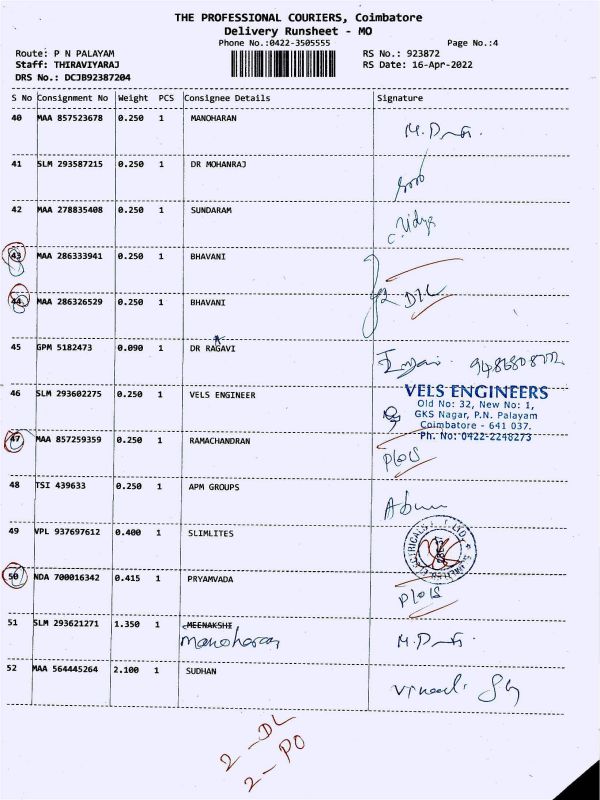 THE PROFESSIONAL COURIERS, Coimbatore
Delivery Runsheet - MO
Phone No.:0422-3505555 Page No.:4
Route: P N PALAYAM RS No.: 923872
Staff: THIRAVIYARAJ RS Date: 16-Apr-2022
DRS No.: DCJB92387204
S No Consignment No Weight PCS Consignee Details Signature
40 MAA 857523678 0.250 1 MANOHARAN
41 SLM 293587215 0.250 1 DR MOHANRAJ
42 MAA 278835408 0.250 1 SUNDARAM Vidya
43 MAA 286333941 0.250 1 BHAVANI
44 MAA 286326529 0.250 1 BHAVANI
45 GPM 5182473 0.090 1 DR RAGAVI
46 SLM 293602275 0.250 1 VELS ENGINEER
VELS ENGINEERS
Old No: 32, New No: 1,
GKS Nagar, P.N. Palayam
Coimbatore - 641 037.
Ph. No: 0422-2248273
47 MAA 857259359 0.250 1 RAMACHANDRAN
48 TSI 439633 0.250 1 APM GROUPS
49 VPL 937697612 0.400 1 SLIMLITES
50 NDA 700016342 0.415 1 PRYAMVADA
51 SLM 293621271 1.350 1 MEENAKSHI
Manoharan
52 MAA 564445264 2.100 1 SUDHAN
2 - DL
2 - PO